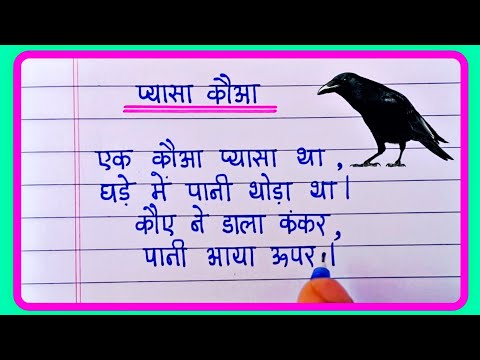 प्यासा कौआ
एक कौआ प्यासा था,
घड़े में पानी थोड़ा था।
कौए ने डाला कंकर,
पानी आया ऊपर।